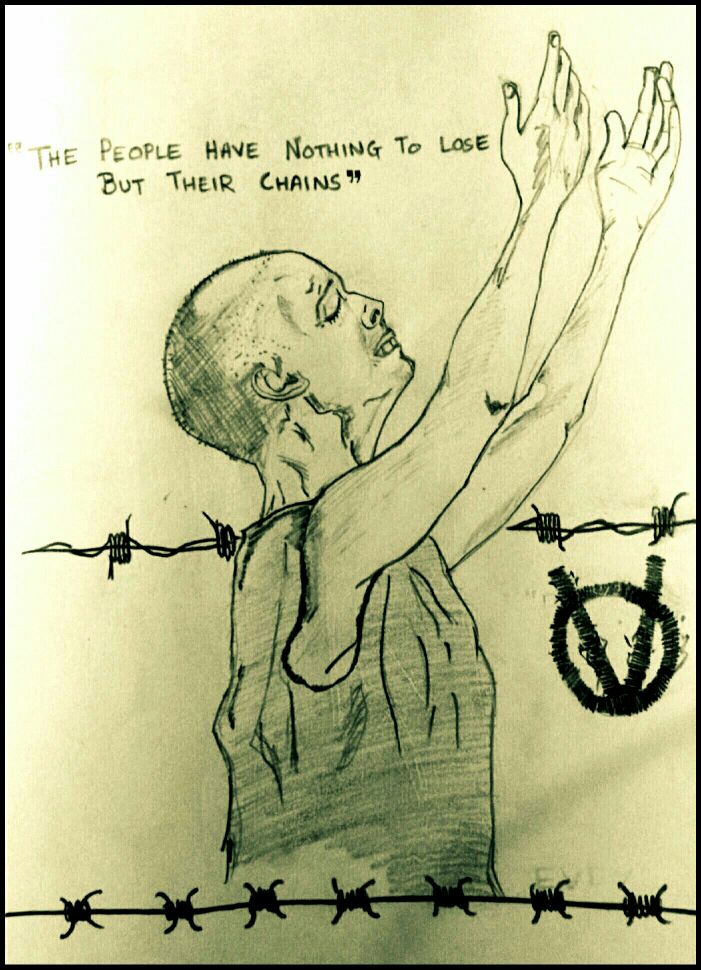 "THE PEOPLE HAVE NOTHING TO LOSE
BUT THEIR CHAINS"